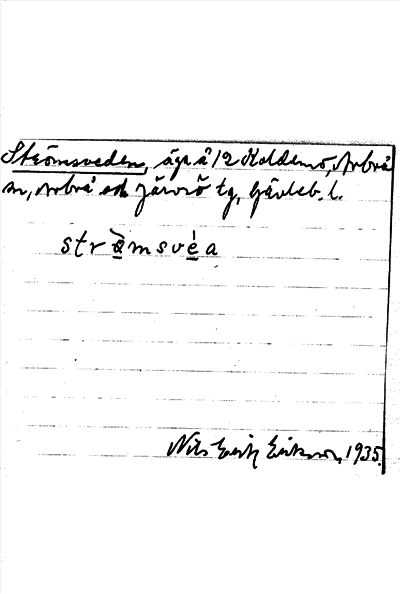 Strömsveden, äga å 12 Koldemo, Arbrå
sn, Arbrå och Järvsö tg, Gävleb. l.
strö̀msvéa
Nils Erik Eriksson, 1935.